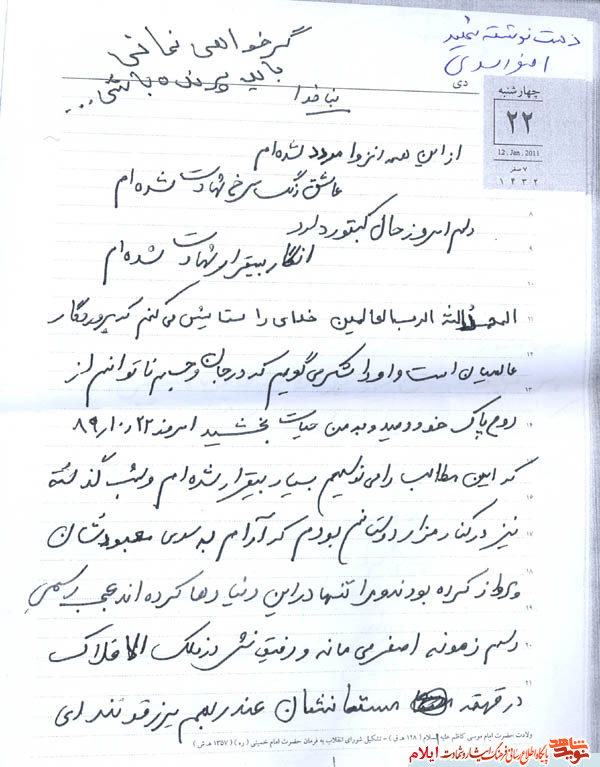 دست نوشته شهید
اصغر اسدی
گر خواهی نمانی
باید پرنده باشی...
بنام خدا
دی
چهارشنبه
۲۲
12 . Jan . 2011
۷ صفر
۱۴۳۲
از این همه انزوا مردد شده‌ام
عاشق رنگ سرخ شهادت شده‌ام
دلم امروز حال کبوتر دارد
انگار بیقرار شهادت شده‌ام
الحمدالله الرب العالمین خدای را ستایش می‌کنم که پروردگار
عالمیان است و او را شکر می‌گویم که در جان و جسم ناتوانم از
روح پاک خود دمید و به من حیات بخشید امروز ۸۹/۱۰/۲۲
که این مطالب را می‌نویسم بسیار بیقرار شده‌ام و شب گذشته
نیز در کنار مزار دوستانم بودم که آرام به سوی معبودشان
پرواز کرده بودند و مرا تنها در این دنیا رها کرده‌اند عجب رسمیِ
رسم زمونه اصغر می‌مانه و رفیق‌نش در ملک الافلاک
در قهقهه مستانشان عند ربهم یرزقونند ای
ولادت حضرت امام موسی کاظم علیه السلام (۱۲۸ ه.ق) – تشکیل شورای انقلاب به فرمان حضرت امام خمینی (ره) (۱۳۵۷ ه.ش)
۱
نوید شاهد
پایگاه اطلاع رسانی فرهنگ ایثار و شهادت ایلام